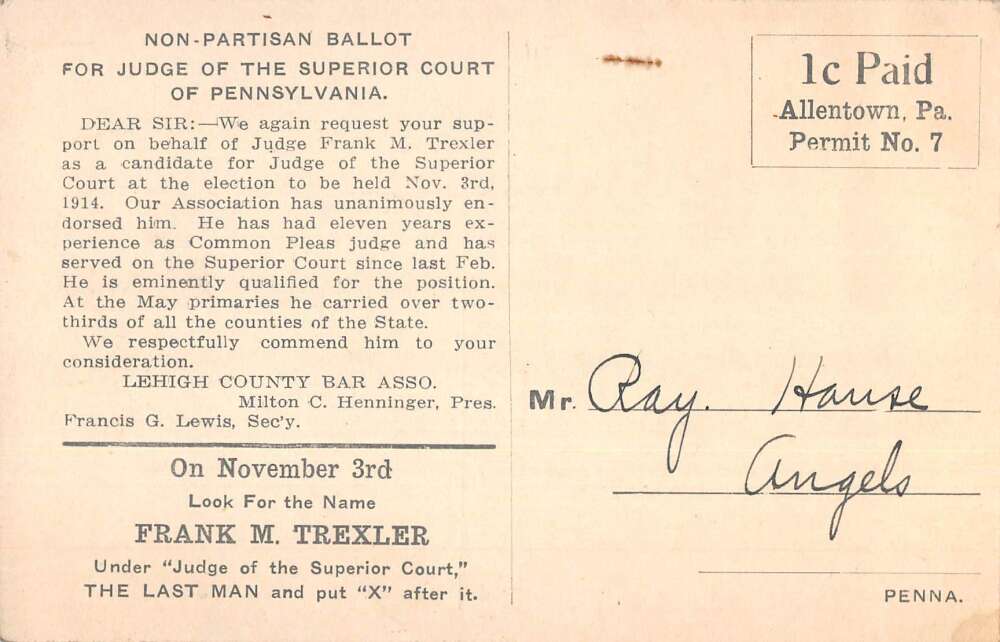 NON-PARTISAN BALLOT
FOR JUDGE OF THE SUPERIOR COURT
OF PENNSYLVANIA.
DEAR SIR:—We again request your sup-
port on behalf of Judge Frank M. Trexler
as a candidate for Judge of the Superior
Court at the election to be held Nov. 3rd,
1914. Our Association has unanimously en-
dorsed him. He has had eleven years ex-
perience as Common Pleas judge and has
served on the Superior Court since last Feb.
He is eminently qualified for the position.
At the May primaries he carried over two-
thirds of all the counties of the State.
We respectfully commend him to your
consideration.
LEHIGH COUNTY BAR ASSO.
Milton C. Henninger, Pres.
Francis G. Lewis, Sec'y.
On November 3rd
Look For the Name
FRANK M. TREXLER
Under "Judge of the Superior Court,"
THE LAST MAN and put "X" after it.
1c Paid
Allentown, Pa.
Permit No. 7
Mr. Ray. Hause
Angels
PENNA.